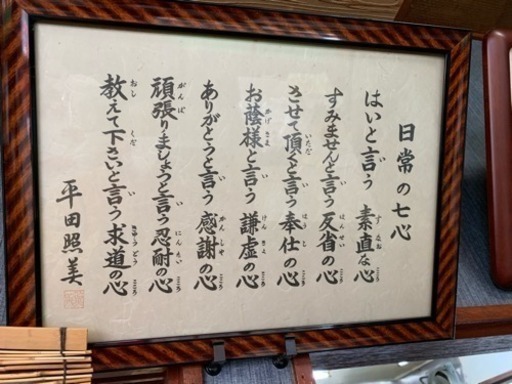 日常の七心
はいと言う 素直な心
すみませんと言う 反省の心
させて頂くと言う 奉仕の心
お蔭様と言う 謙虚の心
ありがとうと言う 感謝の心
頑張りましょうと言う 忍耐の心
教えて下さいと言う 求道の心
平田照美